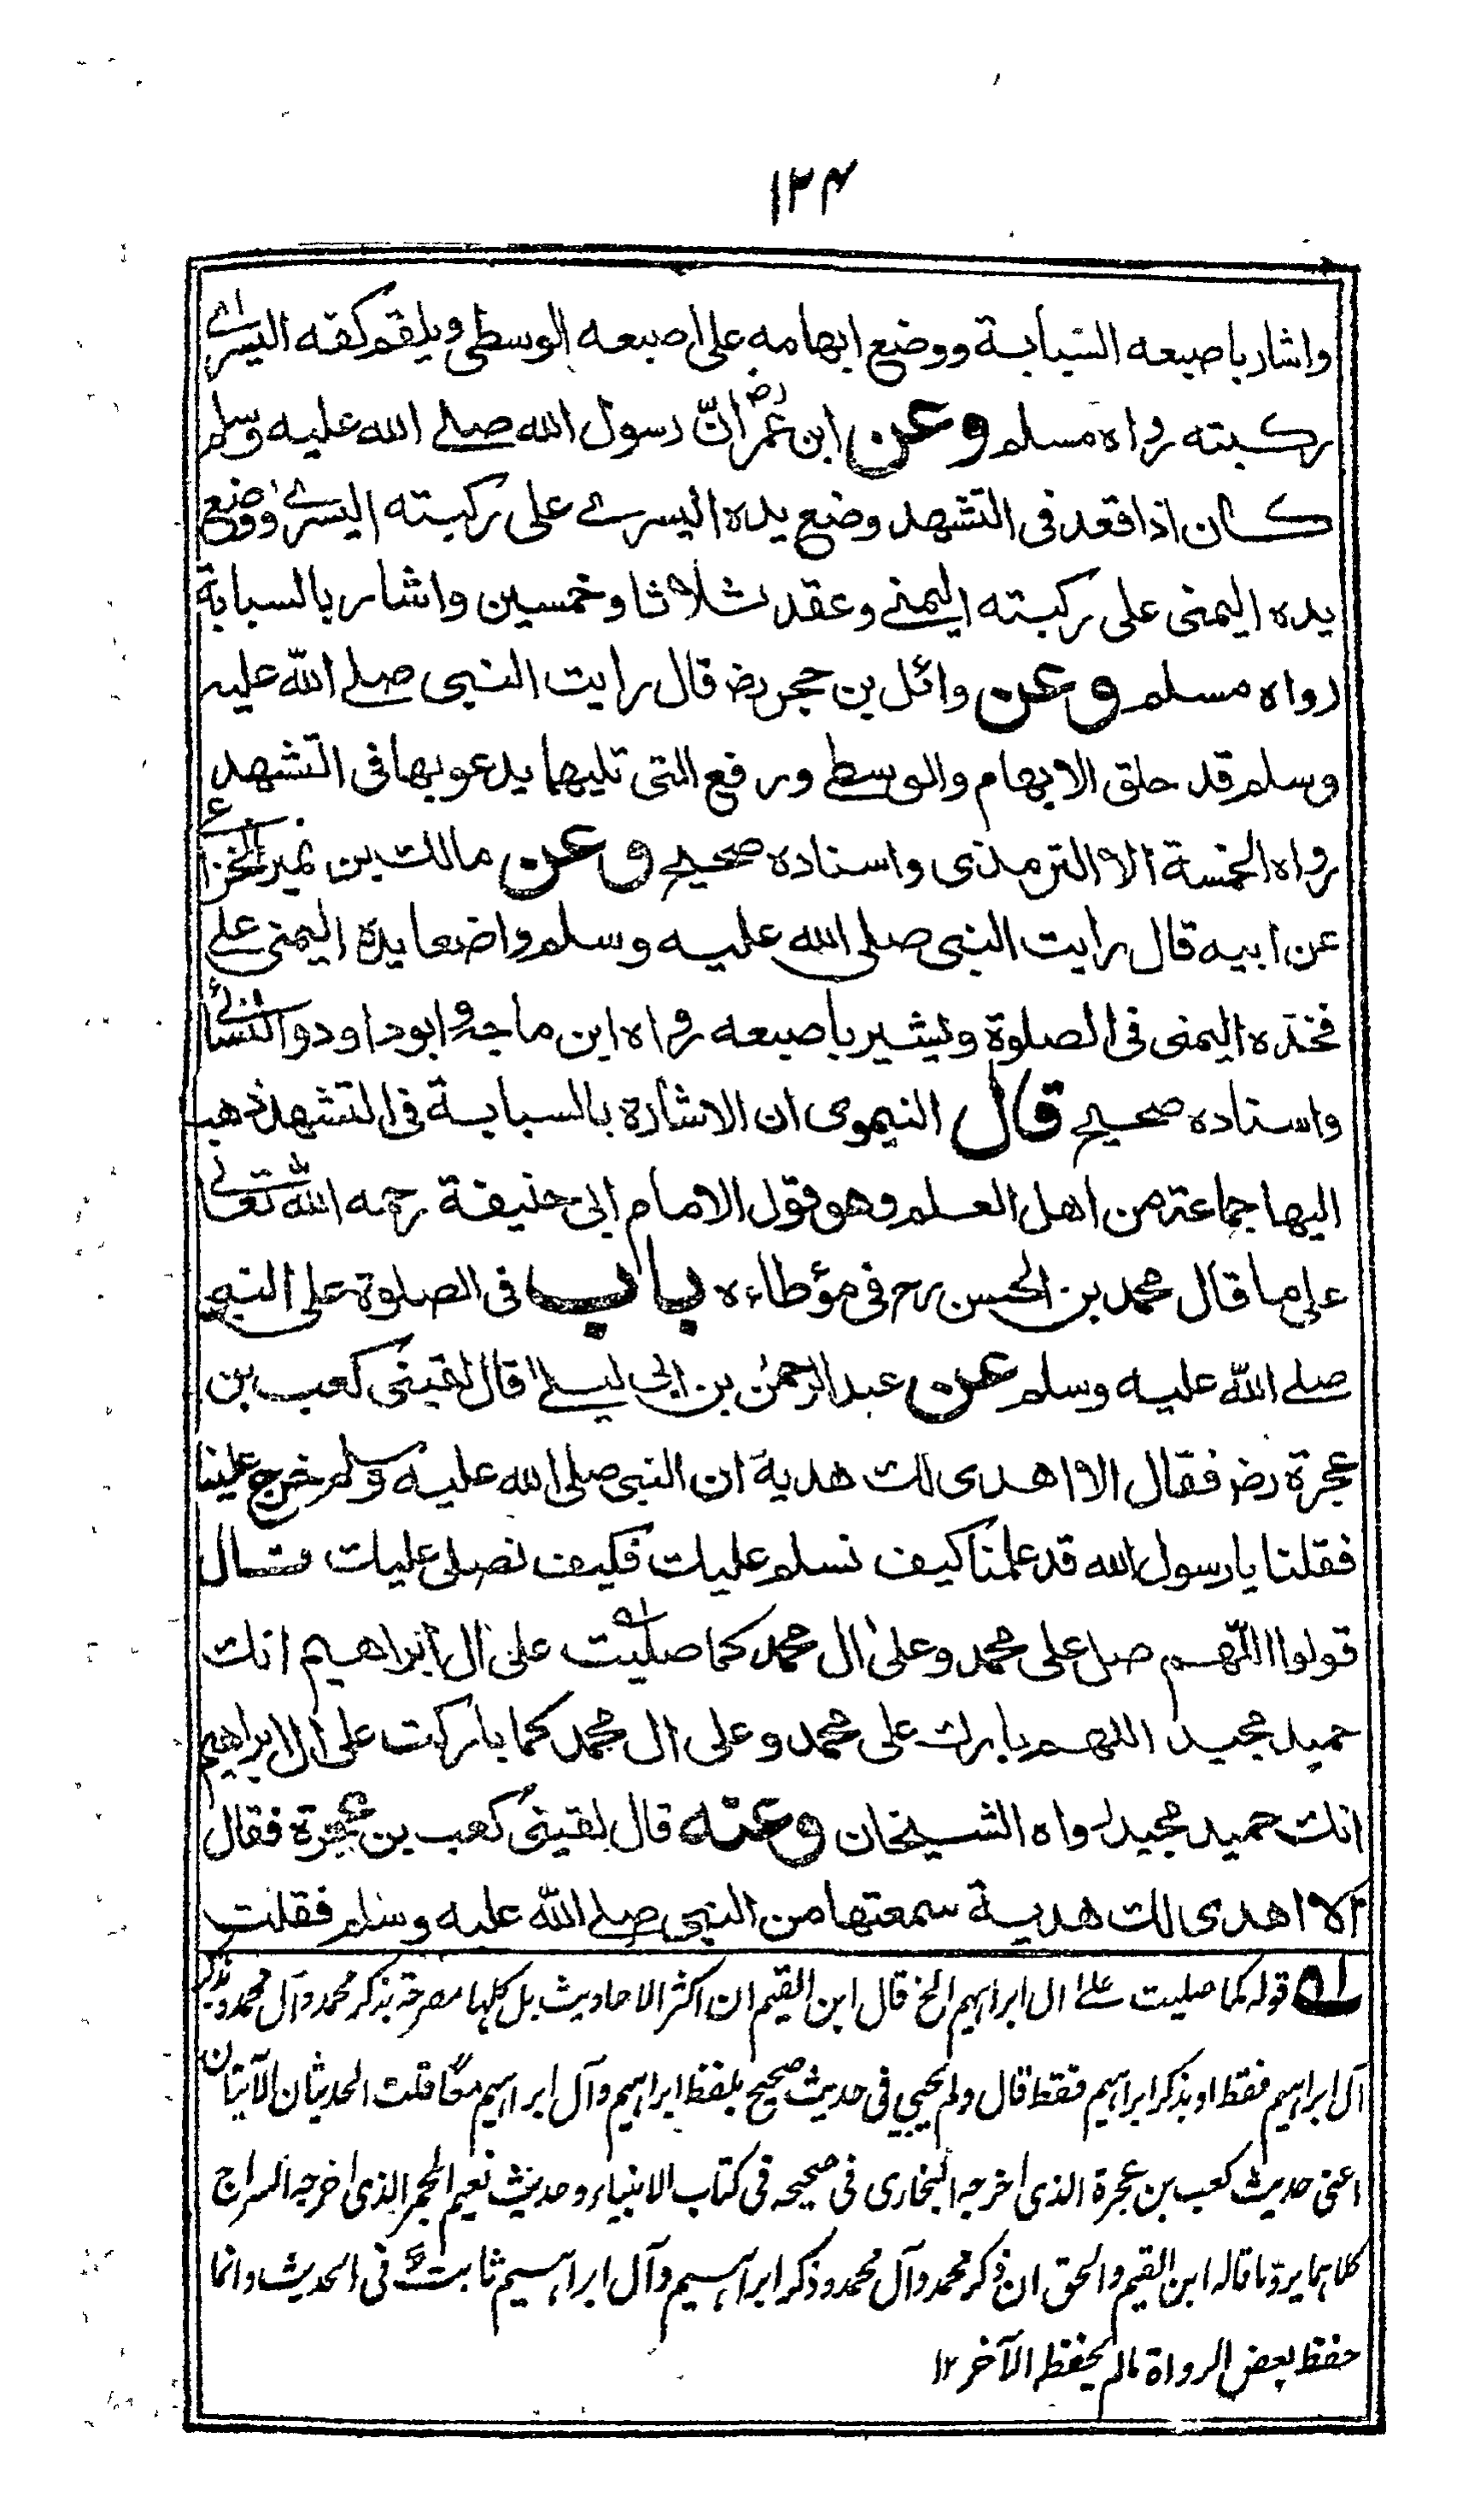 ١٢٤
واشار باصبعه السّبابة ووضع ابهامه على اصبعه الوسطى ويلقم كفه اليسرے
ركبته رواه مسلم وعن ابن عمر رض انّ رسول الله صلے الله عليه وسلم
كان اذا قعد فى التشهد وضع يده اليسرے على ركبته اليسرے ووضع
يده اليمنى على ركبته اليمنے وعقد ثلاثا وخمسين واشار بالسبابة
رواه مسلم وعن وائل بن حجر رض قال رايت النبى صلے اللّٰه عليه
وسلم قد حلق الابهام والوسطے ورفع التى تليهما يدعو بها فى التشهد
رواه الخمسة الا الترمذى واسناده صحيح وعن مالك بن نمير الخزاعے
عن ابيه قال رايت النبى صلى الله عليه وسلم واضعا يده اليمنى علے
فخذه اليمنى فى الصلوة ويشير باصبعه رواه ابن ماجة وابو داود والنسائے
واسناده صحيح قال النيموى ان الاشارة بالسبابة فى التشهد ذهب
اليها جماعة من اهل العلم وهو قول الامام ابى حنيفة رحمه اللّٰه تعالے
على ما قال محمد بن الحسن رح فى مؤطاءه باب فى الصلوة على النبى
صلے اللّٰه عليه وسلم عن عبد الرحمٰن بن ابى ليلے قال لقينى كعب بن
عجرة رض فقال الا اهدى لك هدية ان النبى صلى الله عليه وسلم خرج علينا
فقلنا يا رسول الله قد علمنا كيف نسلم عليك فكيف نصلى عليك قال
قولوا اللّٰهم صل على محمد وعلىٰ ال محمد كما صليت ٥١ علىٰ ال ابراهيم انك
حميد مجيد اللهم بارك على محمد وعلى ال محمد كما باركت على ال ابراهيم
انك حميد مجيد رواه الشيخان وعنه قال لقينى كعب بن عجرة فقال
الا اهدى لك هدية سمعتها من النبى صلے اللّٰه عليه وسلم فقلت
٥١ قوله كما صليت علے ال ابراهيم الخ قال ابن القيم ان اكثر الاحاديث بل كلها مصرحة بذكر محمد وآل محمد وبذكر
آل ابراهيم فقط او بذكر ابراهيم فقط قال ولم يجيى فى حديث صحيح بلفظ ابراهيم وآل ابراهيم معًا قلت الحديثان الآتيان
اعنى حديث كعب بن عجرة الذى اخرجه البخارى فى صحيحه فى كتاب الانبياء وحديث نعيم المجمر الذى اخرجه السراج
كلاهما يرد ما قاله ابن القيم والحق ان ذكر محمد وآل محمد وذكر ابراهيم وآل ابراهيم ثابت فى الحديث وانما
حفظ بعض الرواة ما لم يحفظ الآخر ١٢